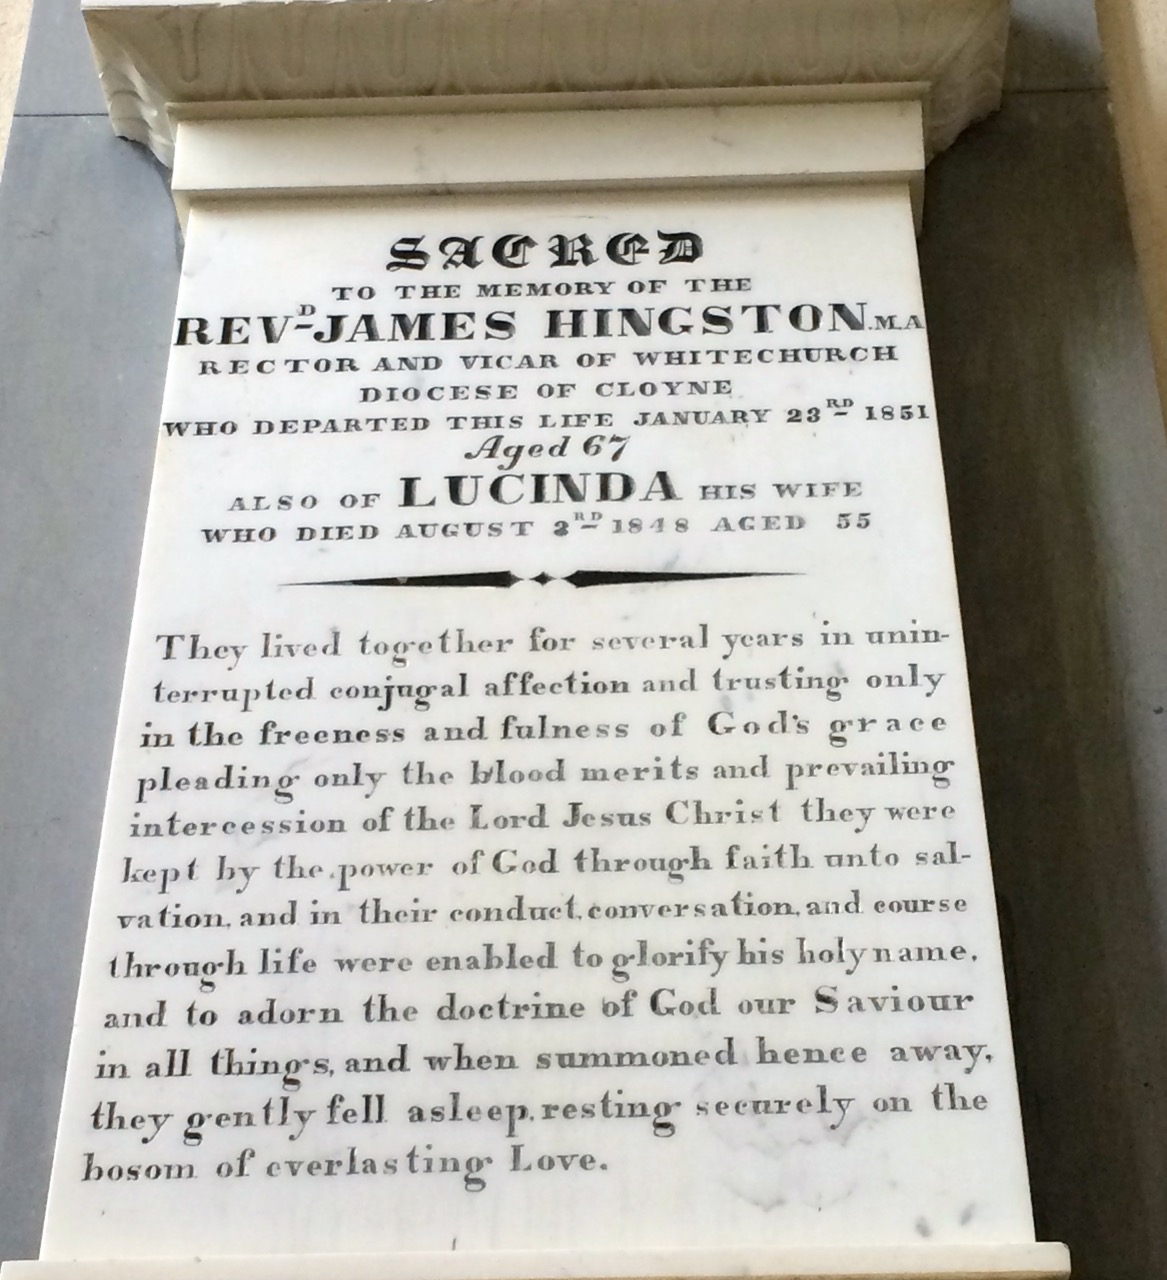 SACRED
TO THE MEMORY OF THE
REVD JAMES HINGSTON. M.A
RECTOR AND VICAR OF WHITECHURCH
DIOCESE OF CLOYNE
WHO DEPARTED THIS LIFE JANUARY 23RD 1851
Aged 67
ALSO OF LUCINDA HIS WIFE
WHO DIED AUGUST 2RD 1848 AGED 55
They lived together for several years in unin-
terrupted conjugal affection and trusting only
in the freeness and fulness of God's grace
pleading only the blood merits and prevailing
intercession of the Lord Jesus Christ they were
kept by the power of God through faith unto sal-
vation, and in their conduct, conversation, and course
through life were enabled to glorify his holy name,
and to adorn the doctrine of God our Saviour
in all things, and when summoned hence away,
they gently fell asleep, resting securely on the
bosom of everlasting Love.